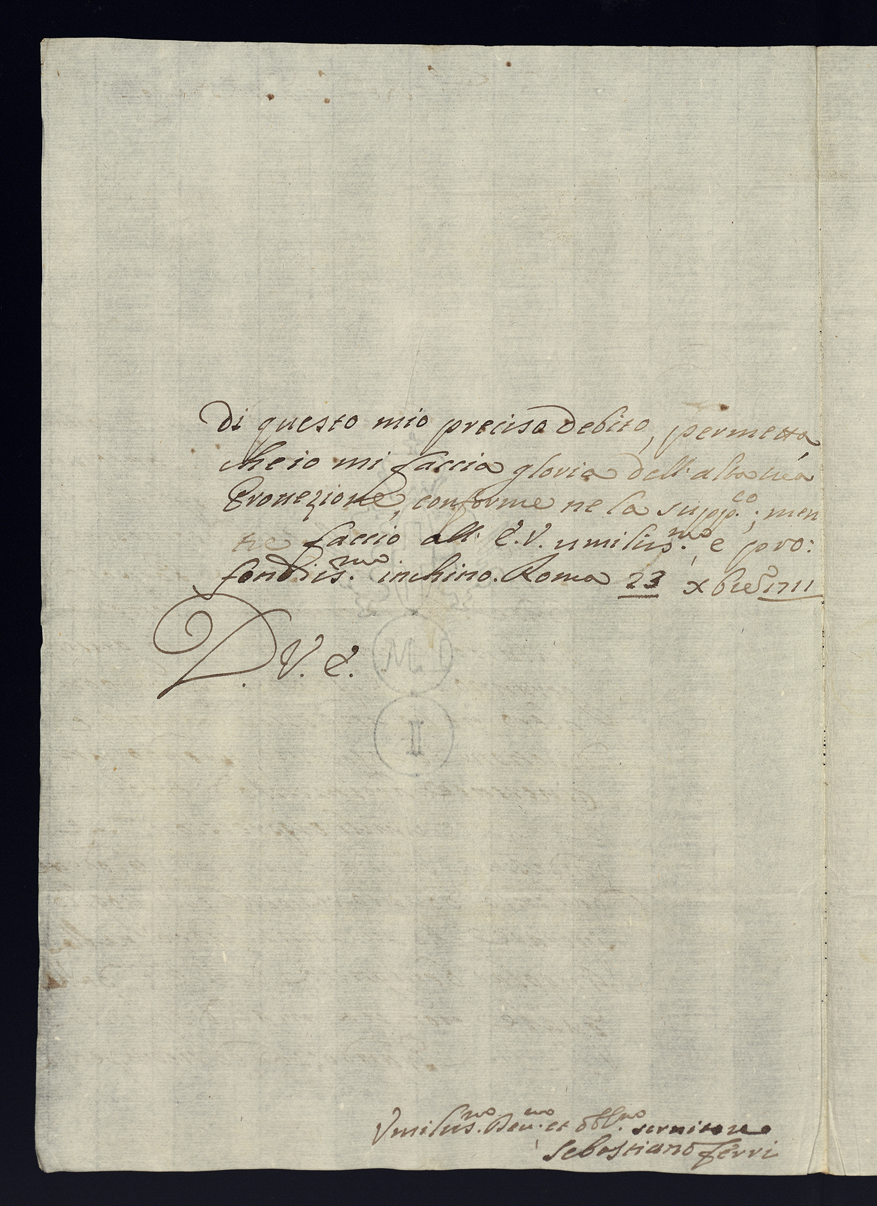 Di questo mio preciso debito, permetta
che io mi faccia gloria dell'alta sua
Protezione, conforme ne la supp.co; men
tre faccio all' E.V. umiliss.mo e pro:
fondiss.mo inchino. Roma 23 Xbre 1711
D. V. E.
M
I
Umiliss.mo Dev.mo et obbl.mo servitore
Sebastiano Ferri